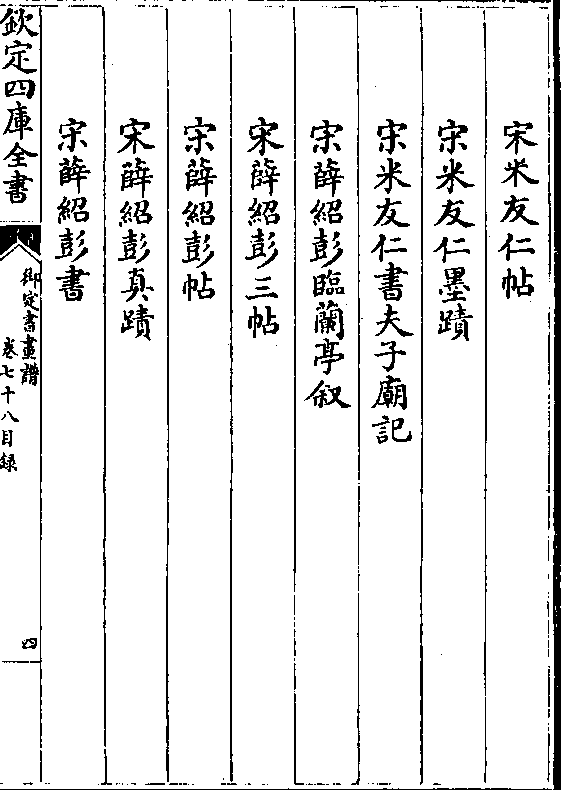 宋米友仁帖
宋米友仁墨蹟
宋米友仁書夫子廟記
宋薛紹彭臨蘭亭叙
宋薛紹彭三帖
宋薛紹彭帖
宋薛紹彭真蹟
宋薛紹彭書
欽定四庫全書
御定書畫譜
卷七十八目録
四